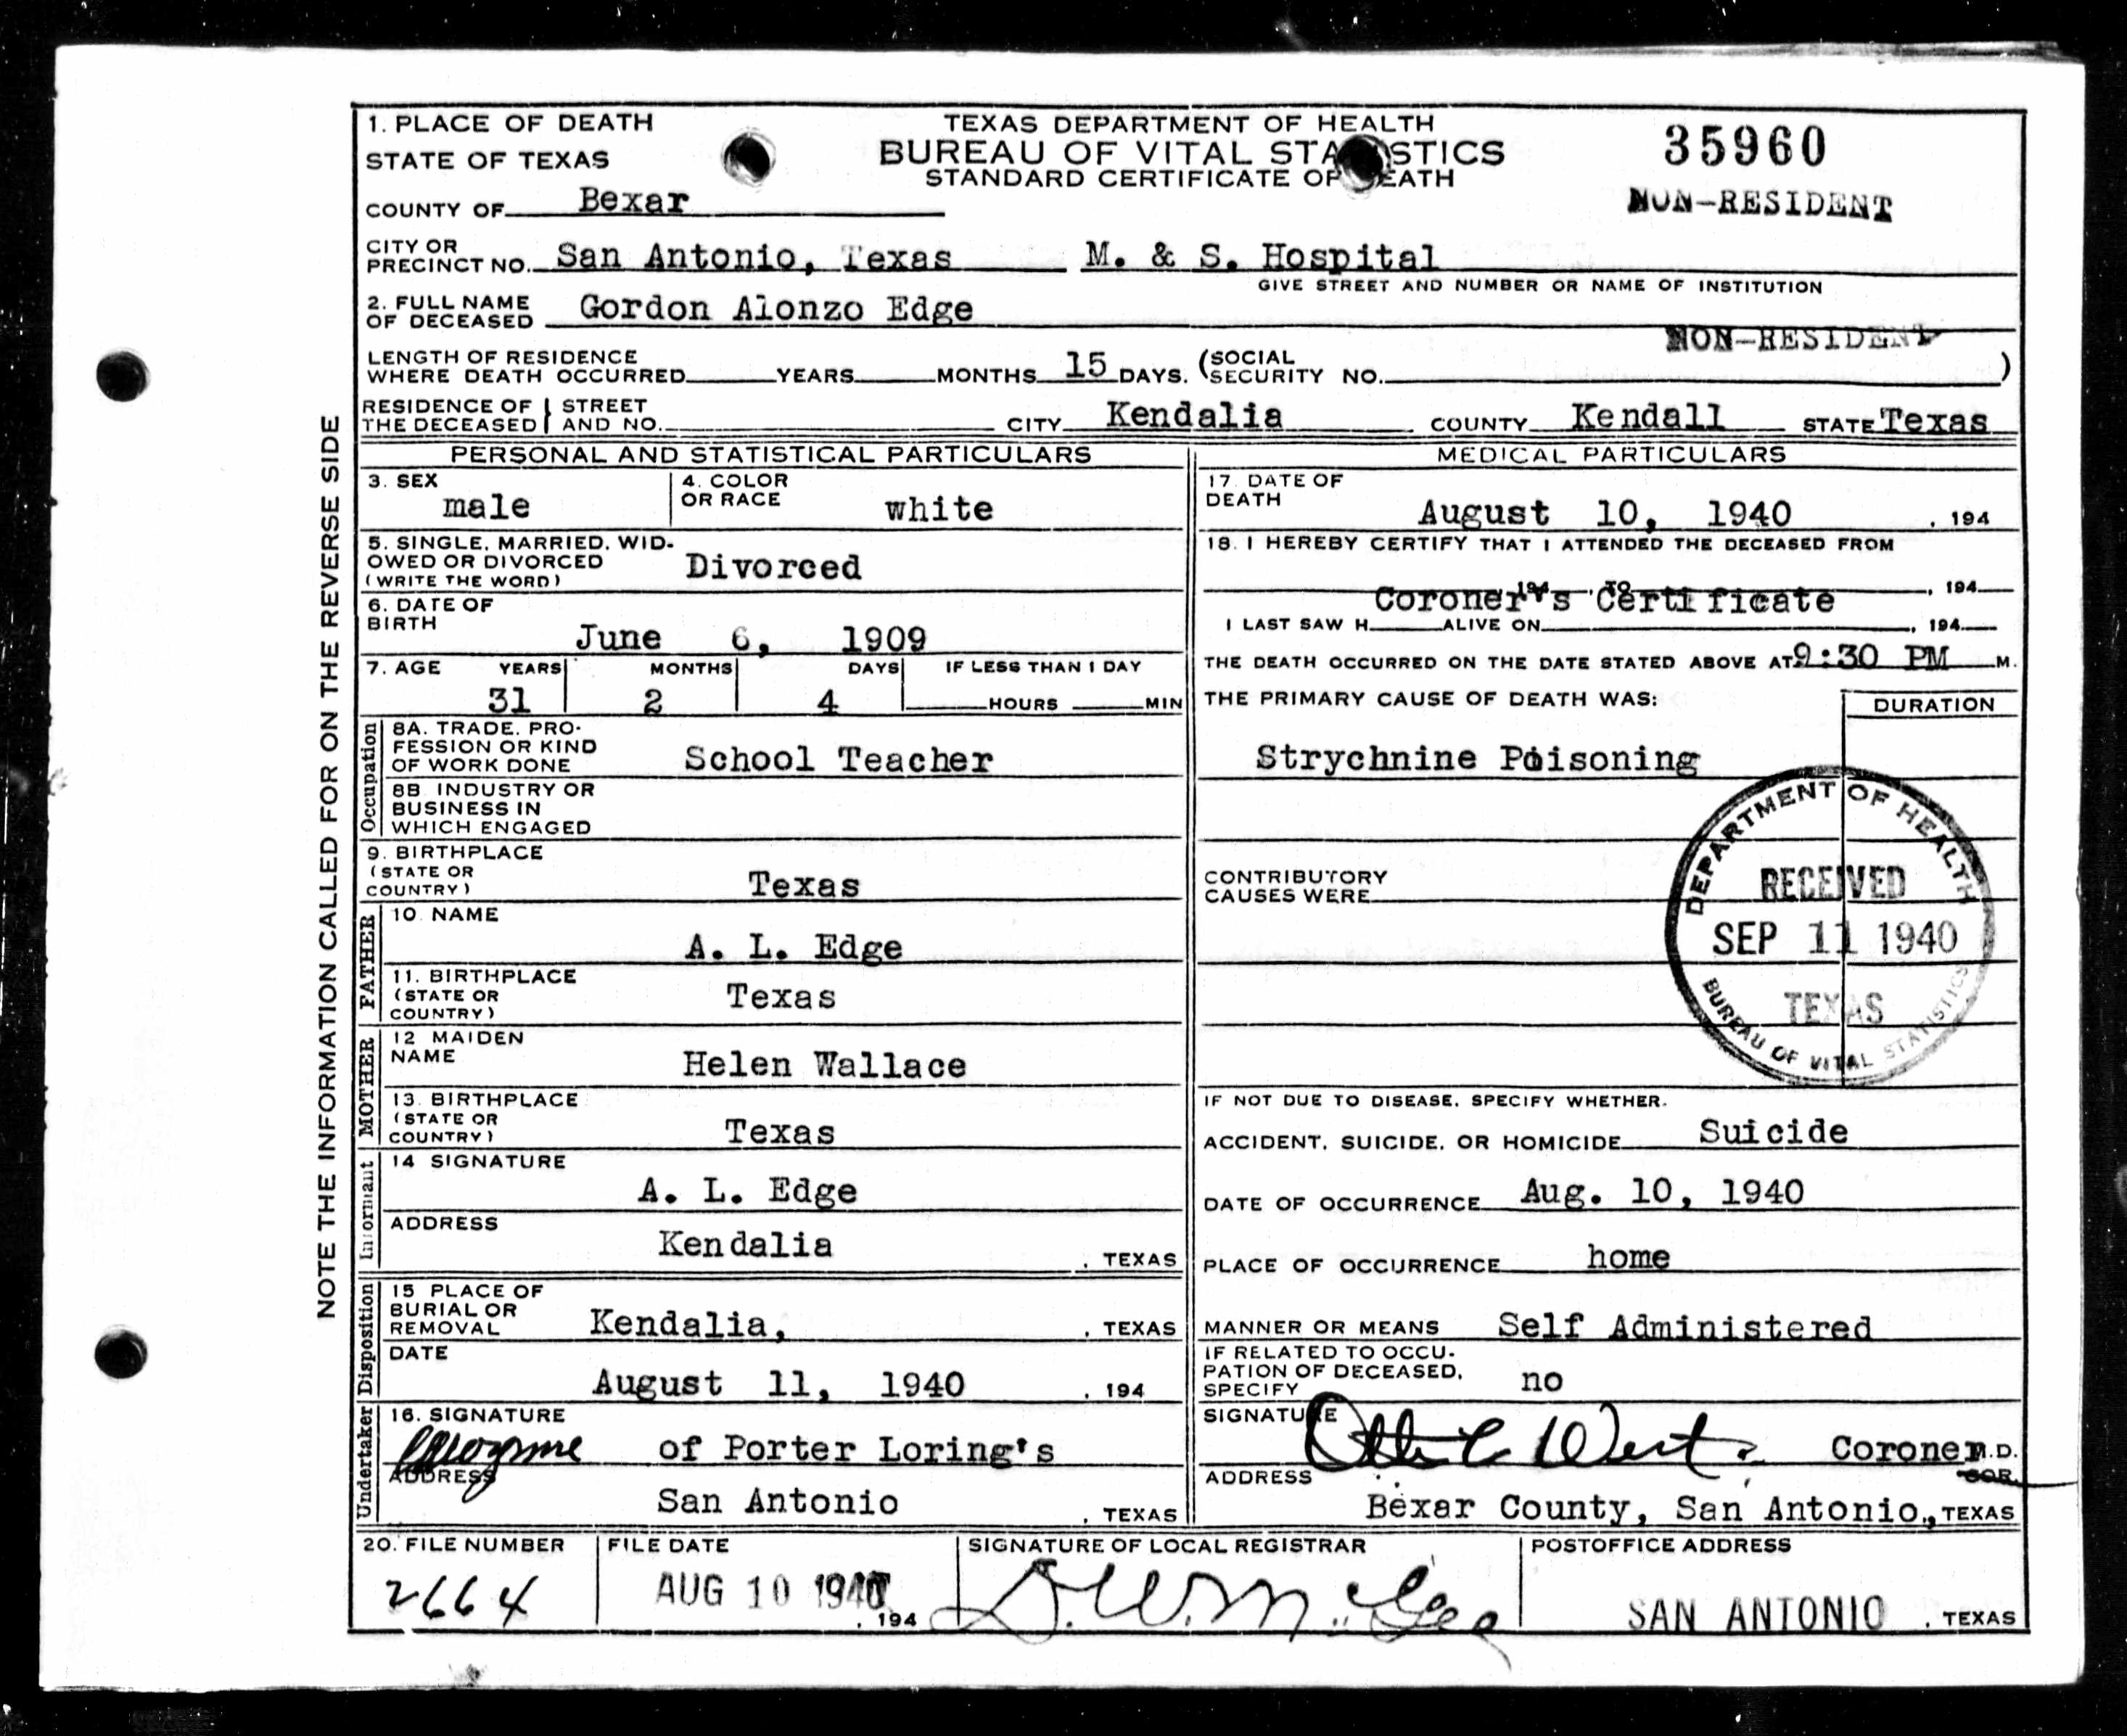 1. PLACE OF DEATH
STATE OF TEXAS
COUNTY OF Bexar
TEXAS DEPARTMENT OF HEALTH
BUREAU OF VITAL STA STICS
STANDARD CERTIFICATE OF EATH
35960
NON-RESIDENT
CITY OR PRECINCT NO. San Antonio, Texas M. & S. Hospital
GIVE STREET AND NUMBER OR NAME OF INSTITUTION
2. FULL NAME OF DECEASED Gordon Alonzo Edge
NON-RESIDENT
LENGTH OF RESIDENCE WHERE DEATH OCCURRED YEARS MONTHS 15 DAYS. (SOCIAL SECURITY NO. )
RESIDENCE OF THE DECEASED STREET AND NO. CITY Kendalia COUNTY Kendall STATE Texas
NOTE THE INFORMATION CALLED FOR ON THE REVERSE SIDE
PERSONAL AND STATISTICAL PARTICULARS
3. SEX male
4. COLOR OR RACE white
5. SINGLE, MARRIED, WIDOWED OR DIVORCED (WRITE THE WORD) Divorced
6. DATE OF BIRTH June 6, 1909
7. AGE YEARS MONTHS DAYS IF LESS THAN 1 DAY
31 2 4 HOURS MIN
Occupation
8A. TRADE, PROFESSION OR KIND OF WORK DONE School Teacher
8B INDUSTRY OR BUSINESS IN WHICH ENGAGED
9. BIRTHPLACE (STATE OR COUNTRY) Texas
FATHER
10. NAME A. L. Edge
11. BIRTHPLACE (STATE OR COUNTRY) Texas
MOTHER
12 MAIDEN NAME Helen Wallace
13. BIRTHPLACE (STATE OR COUNTRY) Texas
Informant
14 SIGNATURE A. L. Edge
ADDRESS Kendalia , TEXAS
Disposition
15 PLACE OF BURIAL OR REMOVAL Kendalia, , TEXAS
DATE August 11, 1940 , 194
Undertaker
16. SIGNATURE of Porter Loring's
ADDRESS San Antonio , TEXAS
MEDICAL PARTICULARS
17. DATE OF DEATH August 10, 1940 , 194
18. I HEREBY CERTIFY THAT I ATTENDED THE DECEASED FROM
194 TO , 194
Coroner's Certificate
I LAST SAW H ALIVE ON , 194
THE DEATH OCCURRED ON THE DATE STATED ABOVE AT 9:30 PM M.
THE PRIMARY CAUSE OF DEATH WAS: DURATION
Strychnine Poisoning
CONTRIBUTORY CAUSES WERE
DEPARTMENT OF HEALTH
RECEIVED
SEP 11 1940
TEXAS
BUREAU OF VITAL STATISTICS
IF NOT DUE TO DISEASE, SPECIFY WHETHER.
ACCIDENT, SUICIDE, OR HOMICIDE Suicide
DATE OF OCCURRENCE Aug. 10, 1940
PLACE OF OCCURRENCE home
MANNER OR MEANS Self Administered
IF RELATED TO OCCUPATION OF DECEASED, SPECIFY no
SIGNATURE West Coroner M.D.
COR.
ADDRESS Bexar County, San Antonio., TEXAS
20. FILE NUMBER 2664
FILE DATE AUG 10 1940 , 194
SIGNATURE OF LOCAL REGISTRAR
POSTOFFICE ADDRESS SAN ANTONIO , TEXAS